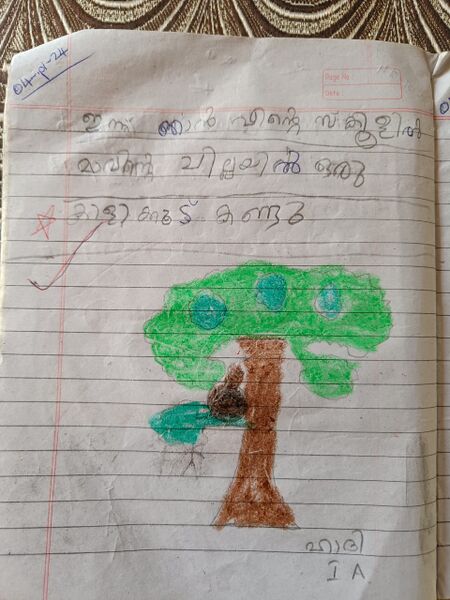 04-pl-24
Page No
Date
ഇന്ന് ഞാൻ എന്റെ സ്കൂളിൽ
മാവിന്റെ ചില്ലയിൽ ഒരു
കിളിക്കൂട് കണ്ടു
ഹാദി
I A